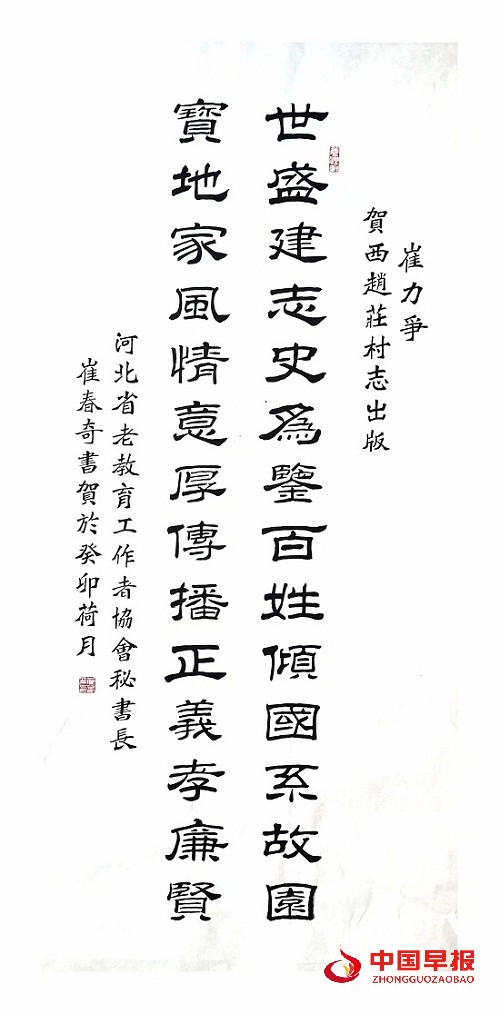 崔力爭
賀西趙莊村志出版
世盛建志史為鑒百姓傾國系故園
寶地家風情意厚傳播正義孝廉賢
河北省老教育工作者協會秘書長
崔春奇書賀於癸卯荷月
中国早报
ZHONGGUOZAOBAO